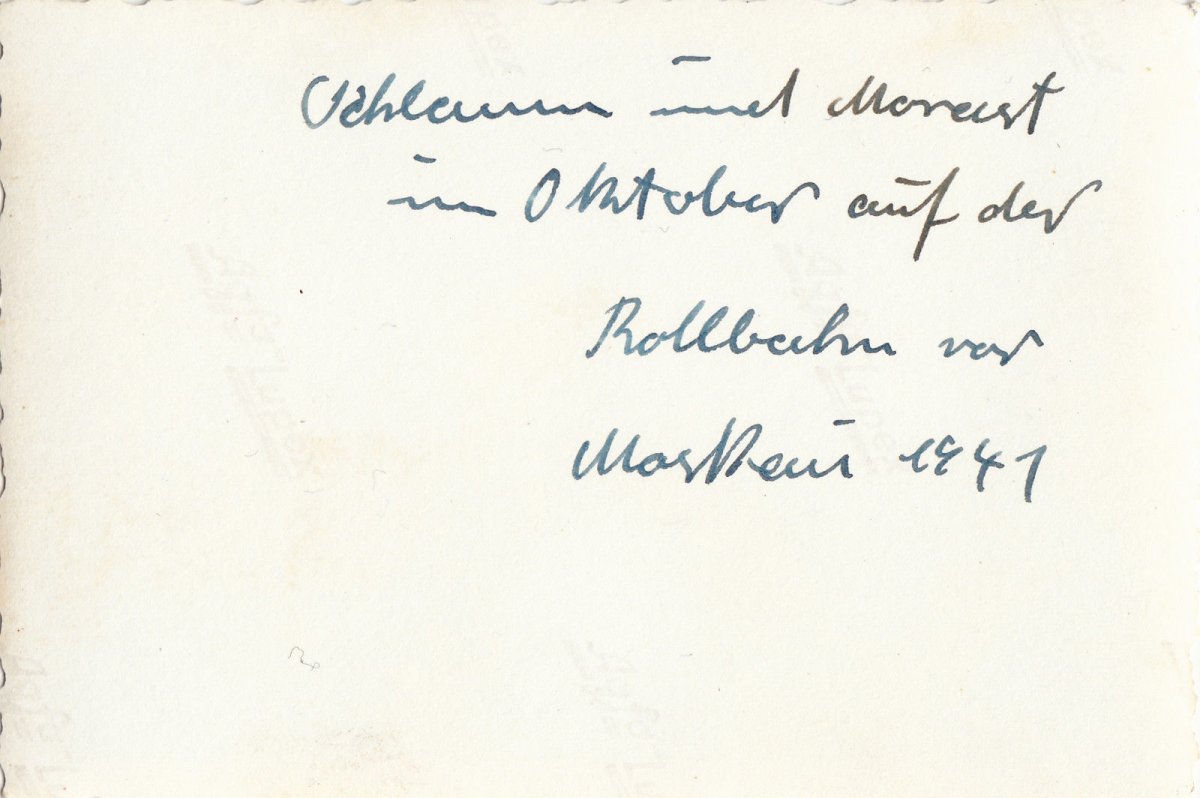 Schlamm und Morast
im Oktober auf der
Rollbahn vor
Moskau 1941